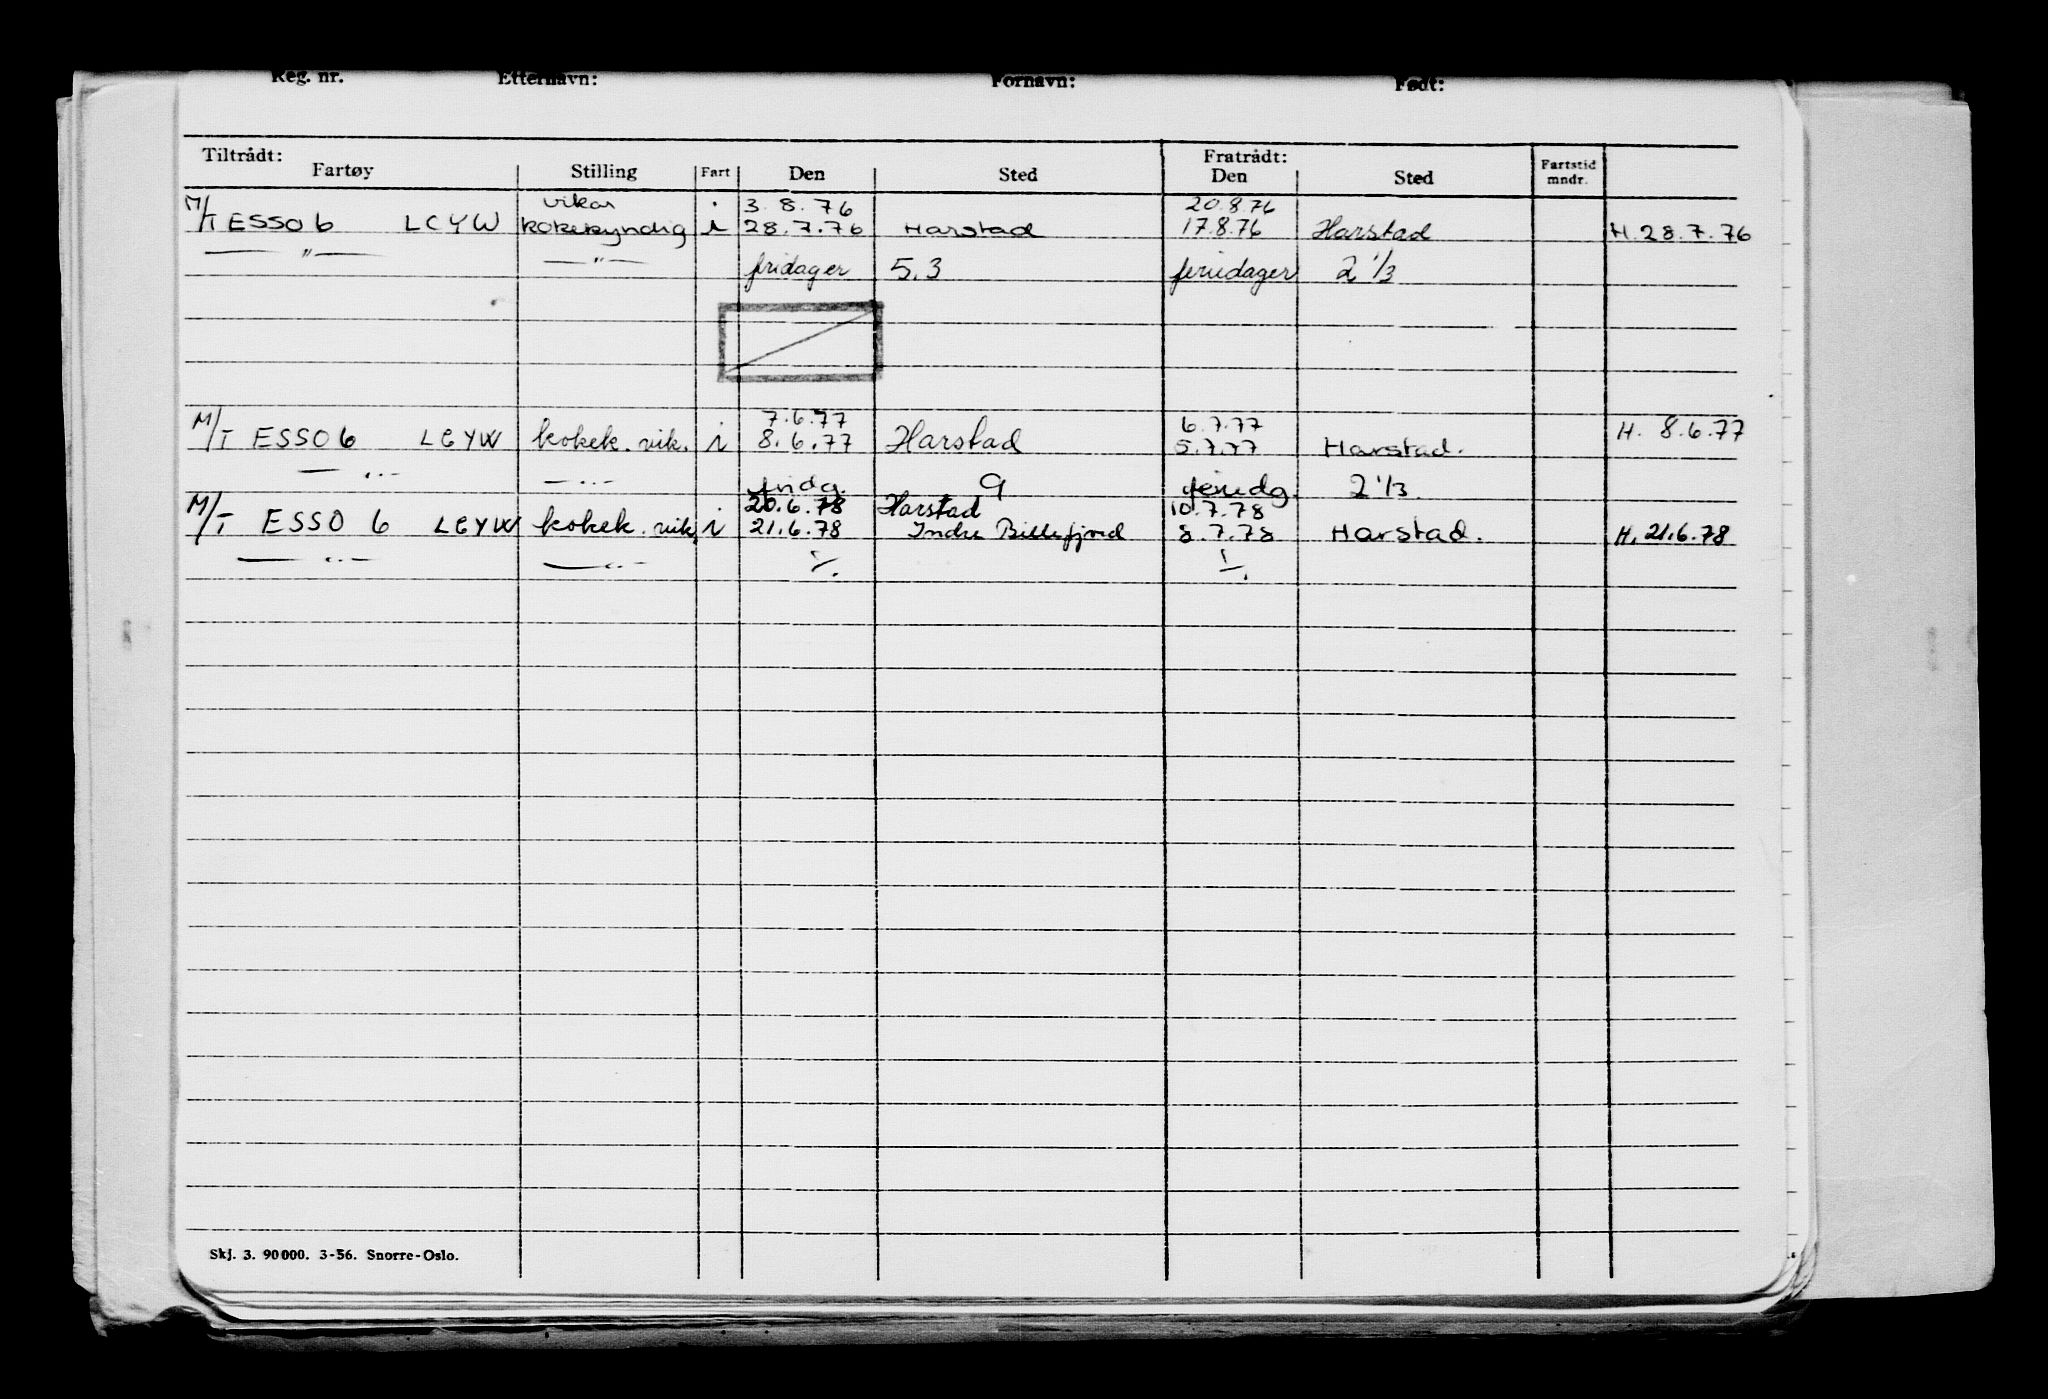 Reg. nr. Etternavn: Fornavn: Født:
Tiltrådt: Fratrådt:
Fartøy Stilling Fart Den Sted Den Sted Fartstid mndr.
vikar 3.8.76 20.8.76
M/T ESSO 6 LCYW kokekyndig i 28.7.76 Harstad 17.8.76 Harstad H. 28.7.76
— " — — " — fridager 5.3 feriedager 2 1/3
7.6.77 6.7.77
M/T ESSO 6 LCYW kokek. vik. i 8.6.77 Harstad 5.7.77 Harstad. H. 8.6.77
— " — — " — fridg. 9 feriedg. 2 1/3.
20.6.78 Harstad 10.7.78
M/T ESSO 6 LCYW kokek. vik. i 21.6.78 Indre Billefjord 8.7.78 Harstad. H. 21.6.78
— " — — " —
Skj. 3. 90 000. 3-56. Snorre-Oslo.